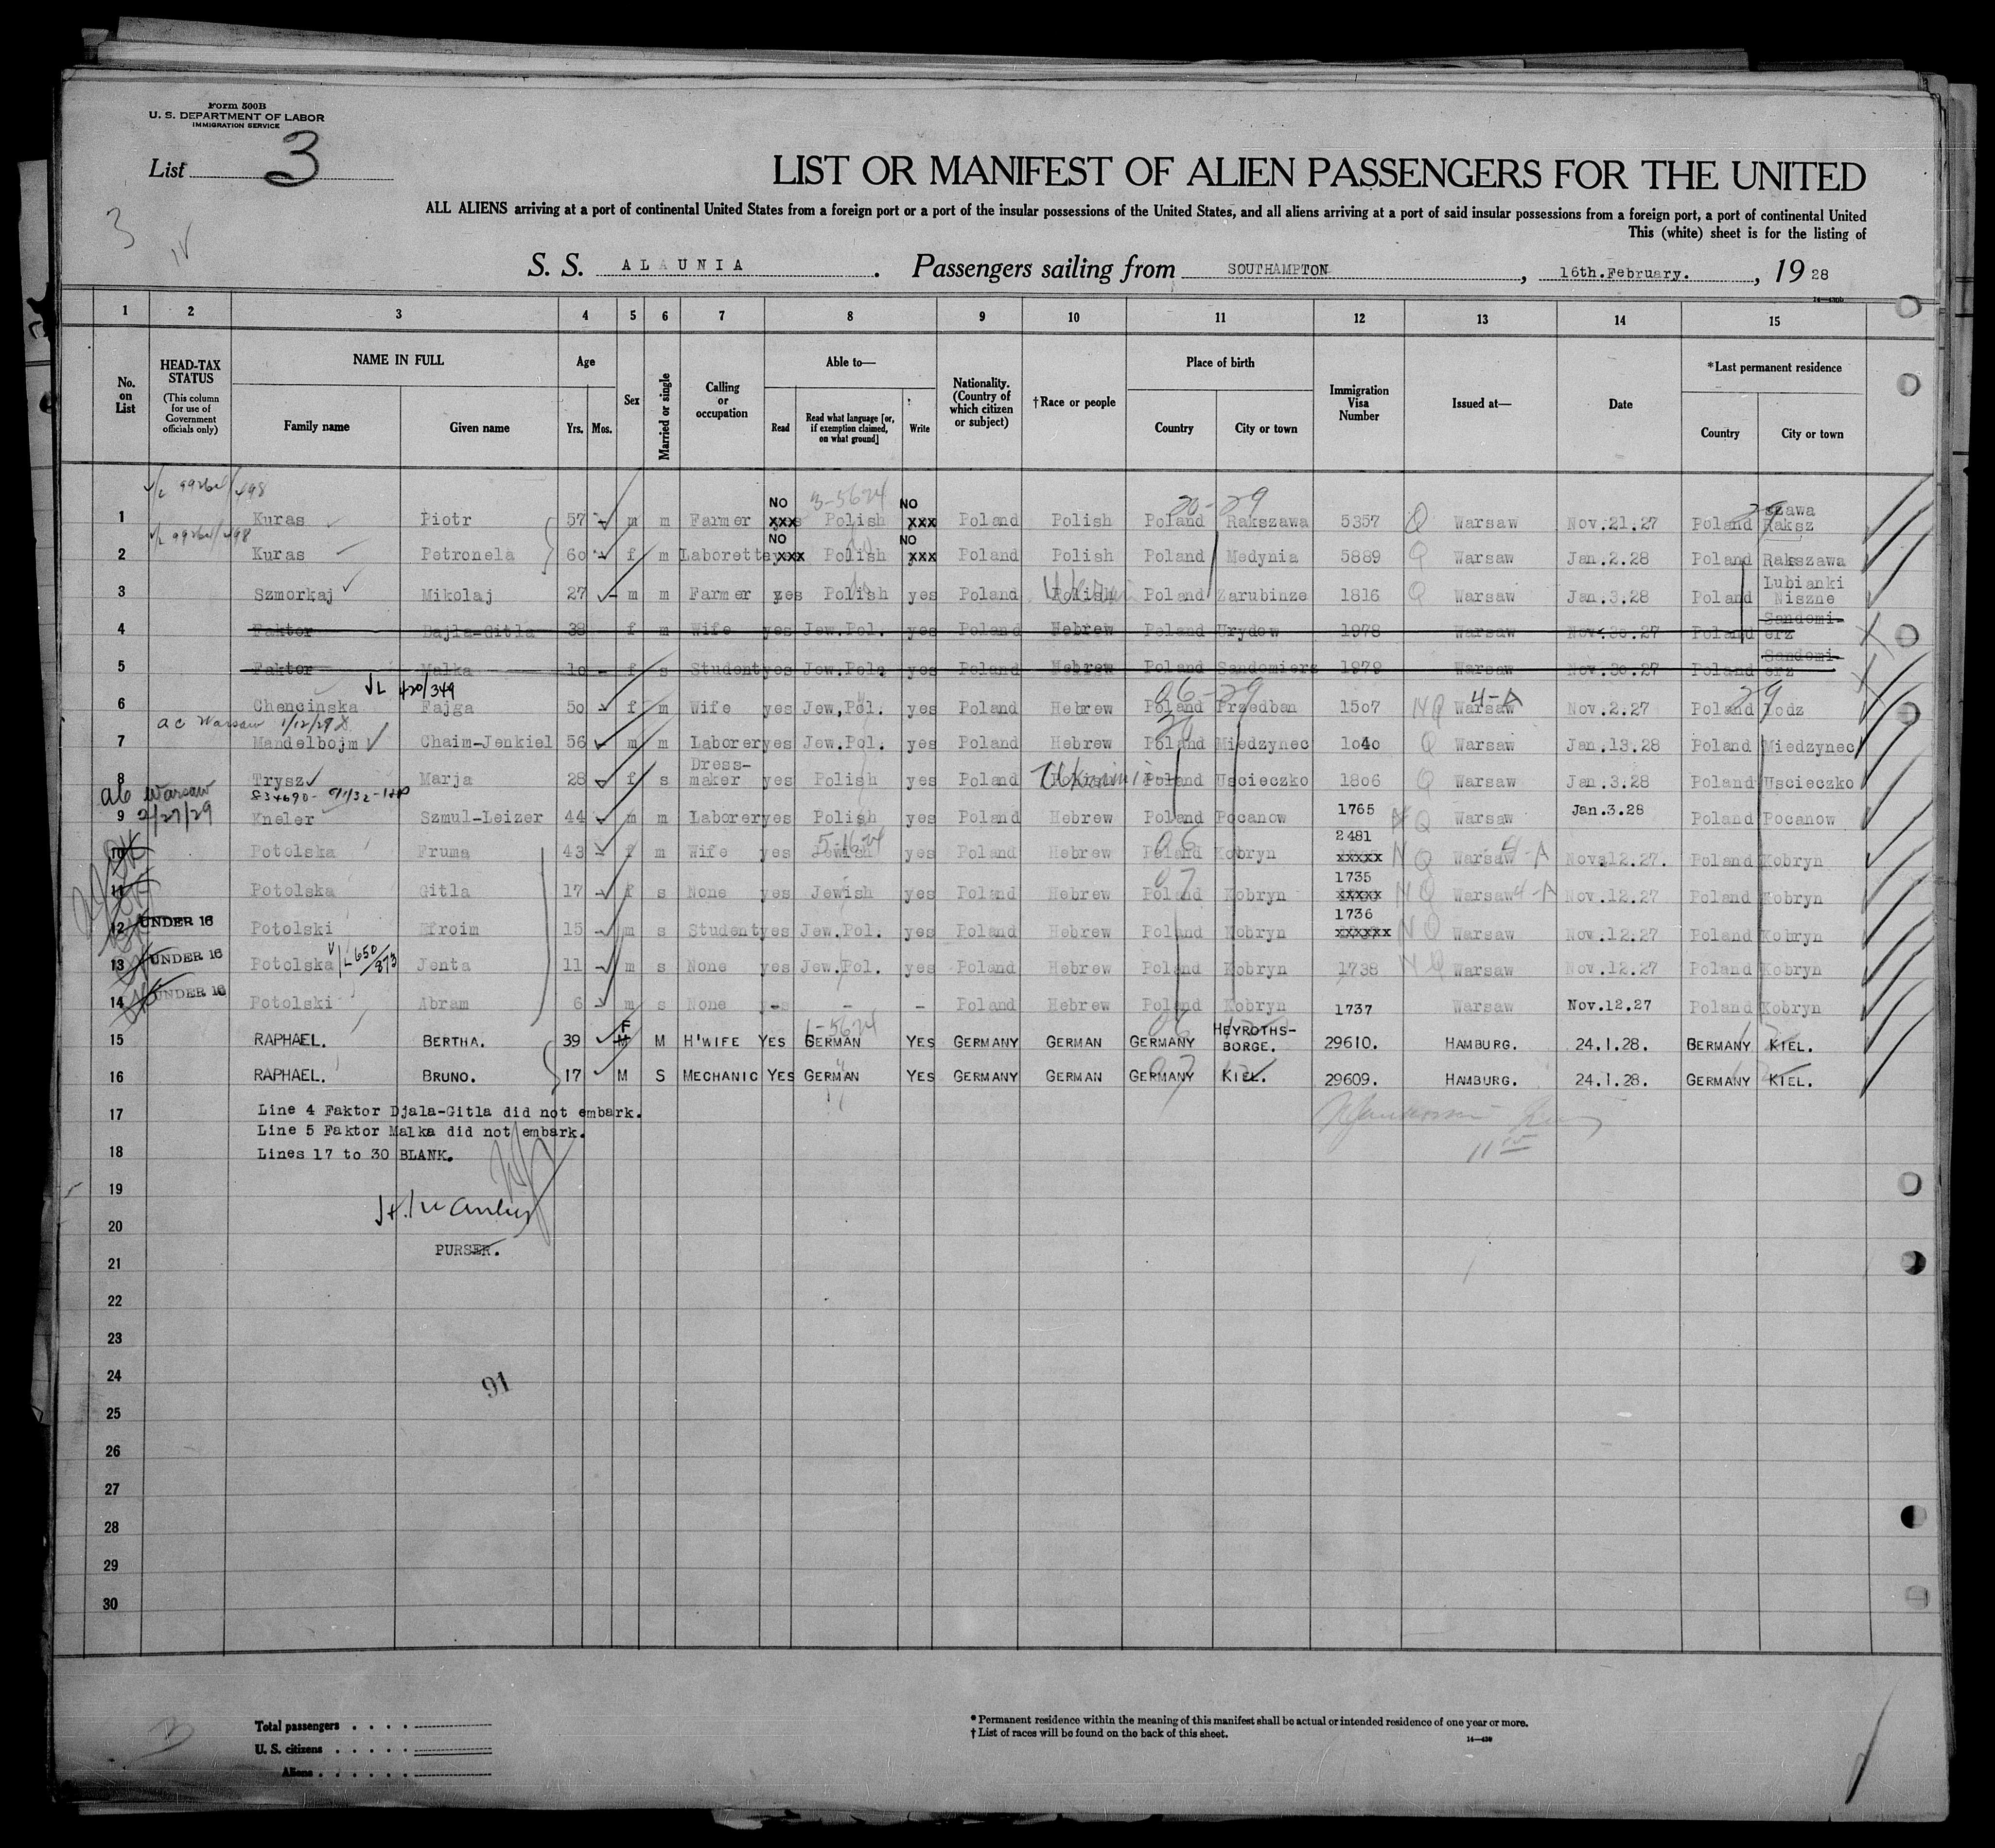 Form 500B
U. S. DEPARTMENT OF LABOR
IMMIGRATION SERVICE
List 3
3
LIST OR MANIFEST OF ALIEN PASSENGERS FOR THE UNITED
ALL ALIENS arriving at a port of continental United States from a foreign port or a port of the insular possessions of the United States, and all aliens arriving at a port of said insular possessions from a foreign port, a port of continental United
This (white) sheet is for the listing of
S. S. ALAUNIA. Passengers sailing from SOUTHAMPTON, 16th.February., 1928
1 2 3 4 5 6 7 8 9 10 11 12 13 14 15
No. on List
HEAD-TAX STATUS (This column for use of Government officials only)
NAME IN FULL
Family name Given name
Age
Yrs. Mos.
Sex
Married or single
Calling or occupation
Able to—
Read
Read what language [or, if exemption claimed, on what ground]
Write
Nationality. (Country of which citizen or subject)
†Race or people
Place of birth
Country City or town
Immigration Visa Number
Issued at—
Date
*Last permanent residence
Country City or town
NO 3-5624 NO 20-29 szawa
1 Kuras Piotr 57 m m Farmer xxx Polish xxx Poland Polish Poland Rakszawa 5357 Q Warsaw Nov.21.27 Poland Raksz
NO NO
2 Kuras Petronela 60 f m Laborette xxx Polish xxx Poland Polish Poland Medynia 5889 Q Warsaw Jan.2.28 Poland Rakszawa
3 Szmorkaj Mikolaj 27 m m Farmer yes Polish yes Poland Polish Poland Zarubinze 1816 Q Warsaw Jan.3.28 Poland Lubianki Niszne
4 Faktor Bajla-Gitla 38 - f m Wife yes Jew.Pol. yes Poland Hebrew Poland Urydow 1978 Warsaw Nov.30.27 Poland Sandomi-erz
5 Faktor Malka 10 - f s Student yes Jew.Pol. yes Poland Hebrew Poland Sandomierz 1979 Warsaw Nov.30.27 Poland Sandomi-erz
420/349 06-29 4-A 29
6 Chencinska Fajga 50 f m Wife yes Jew,Pol. yes Poland Hebrew Poland Przedban 1507 NQ Warsaw Nov.2.27 Poland Lodz
ac Warsaw 1/12/29
7 Mandelbojm Chaim-Jenkiel 56 m m Laborer yes Jew.Pol. yes Poland Hebrew Poland Miedzynec 1040 Q Warsaw Jan.13.28 Poland Miedzynec
8 Trysz Marja 28 f s Dress-maker yes Polish yes Poland Poland Uscieczko 1806 Q Warsaw Jan.3.28 Poland Uscieczko
Warsaw
2/27/29
9 Kneler Szmul-Leizer 44 m m Laborer yes Polish yes Poland Hebrew Poland Pocanow 1765 Q Warsaw Jan.3.28 Poland Pocanow
2481
10 Potolska Fruma 43 f m Wife yes Jewish yes Poland Hebrew Poland Kobryn xxxxx NQ Warsaw 4-A Nov.12.27. Poland Kobryn
1735
11 Potolska Gitla 17 f s None yes Jewish yes Poland Hebrew Poland Kobryn xxxxx NQ Warsaw 4-A Nov.12.27 Poland Kobryn
1736
12 UNDER 16 Potolski Efroim 15 m s Student yes Jew.Pol. yes Poland Hebrew Poland Kobryn xxxxxx NQ Warsaw Nov.12.27 Poland Kobryn
13 UNDER 16 Potolska 650/873 Jenta 11 m s None yes Jew.Pol. yes Poland Hebrew Poland Kobryn 1738 NQ Warsaw Nov.12.27 Poland Kobryn
14 UNDER 16 Potolski Abram 6 m s None - - - Poland Hebrew Poland Kobryn 1737 Warsaw Nov.12.27 Poland Kobryn
15 RAPHAEL. BERTHA. 39 F M M H'WIFE YES GERMAN YES GERMANY GERMAN GERMANY HEYROTHS-BORGE. 29610. HAMBURG. 24.1.28. BERMANY KIEL.
16 RAPHAEL. BRUNO. 17 M S MECHANIC YES GERMAN YES GERMANY GERMAN GERMANY KIEL. 29609. HAMBURG. 24.1.28. GERMANY KIEL.
17 Line 4 Faktor Djala-Gitla did not embark.
Line 5 Faktor Malka did not embark.
18 Lines 17 to 30 BLANK.
19
20
PURSER.
21
22
23
24
91
25
26
27
28
29
30
Total passengers . . . .
U. S. citizens . . . . .
Aliens . . . . . .
*Permanent residence within the meaning of this manifest shall be actual or intended residence of one year or more.
†List of races will be found on the back of this sheet.
14—430